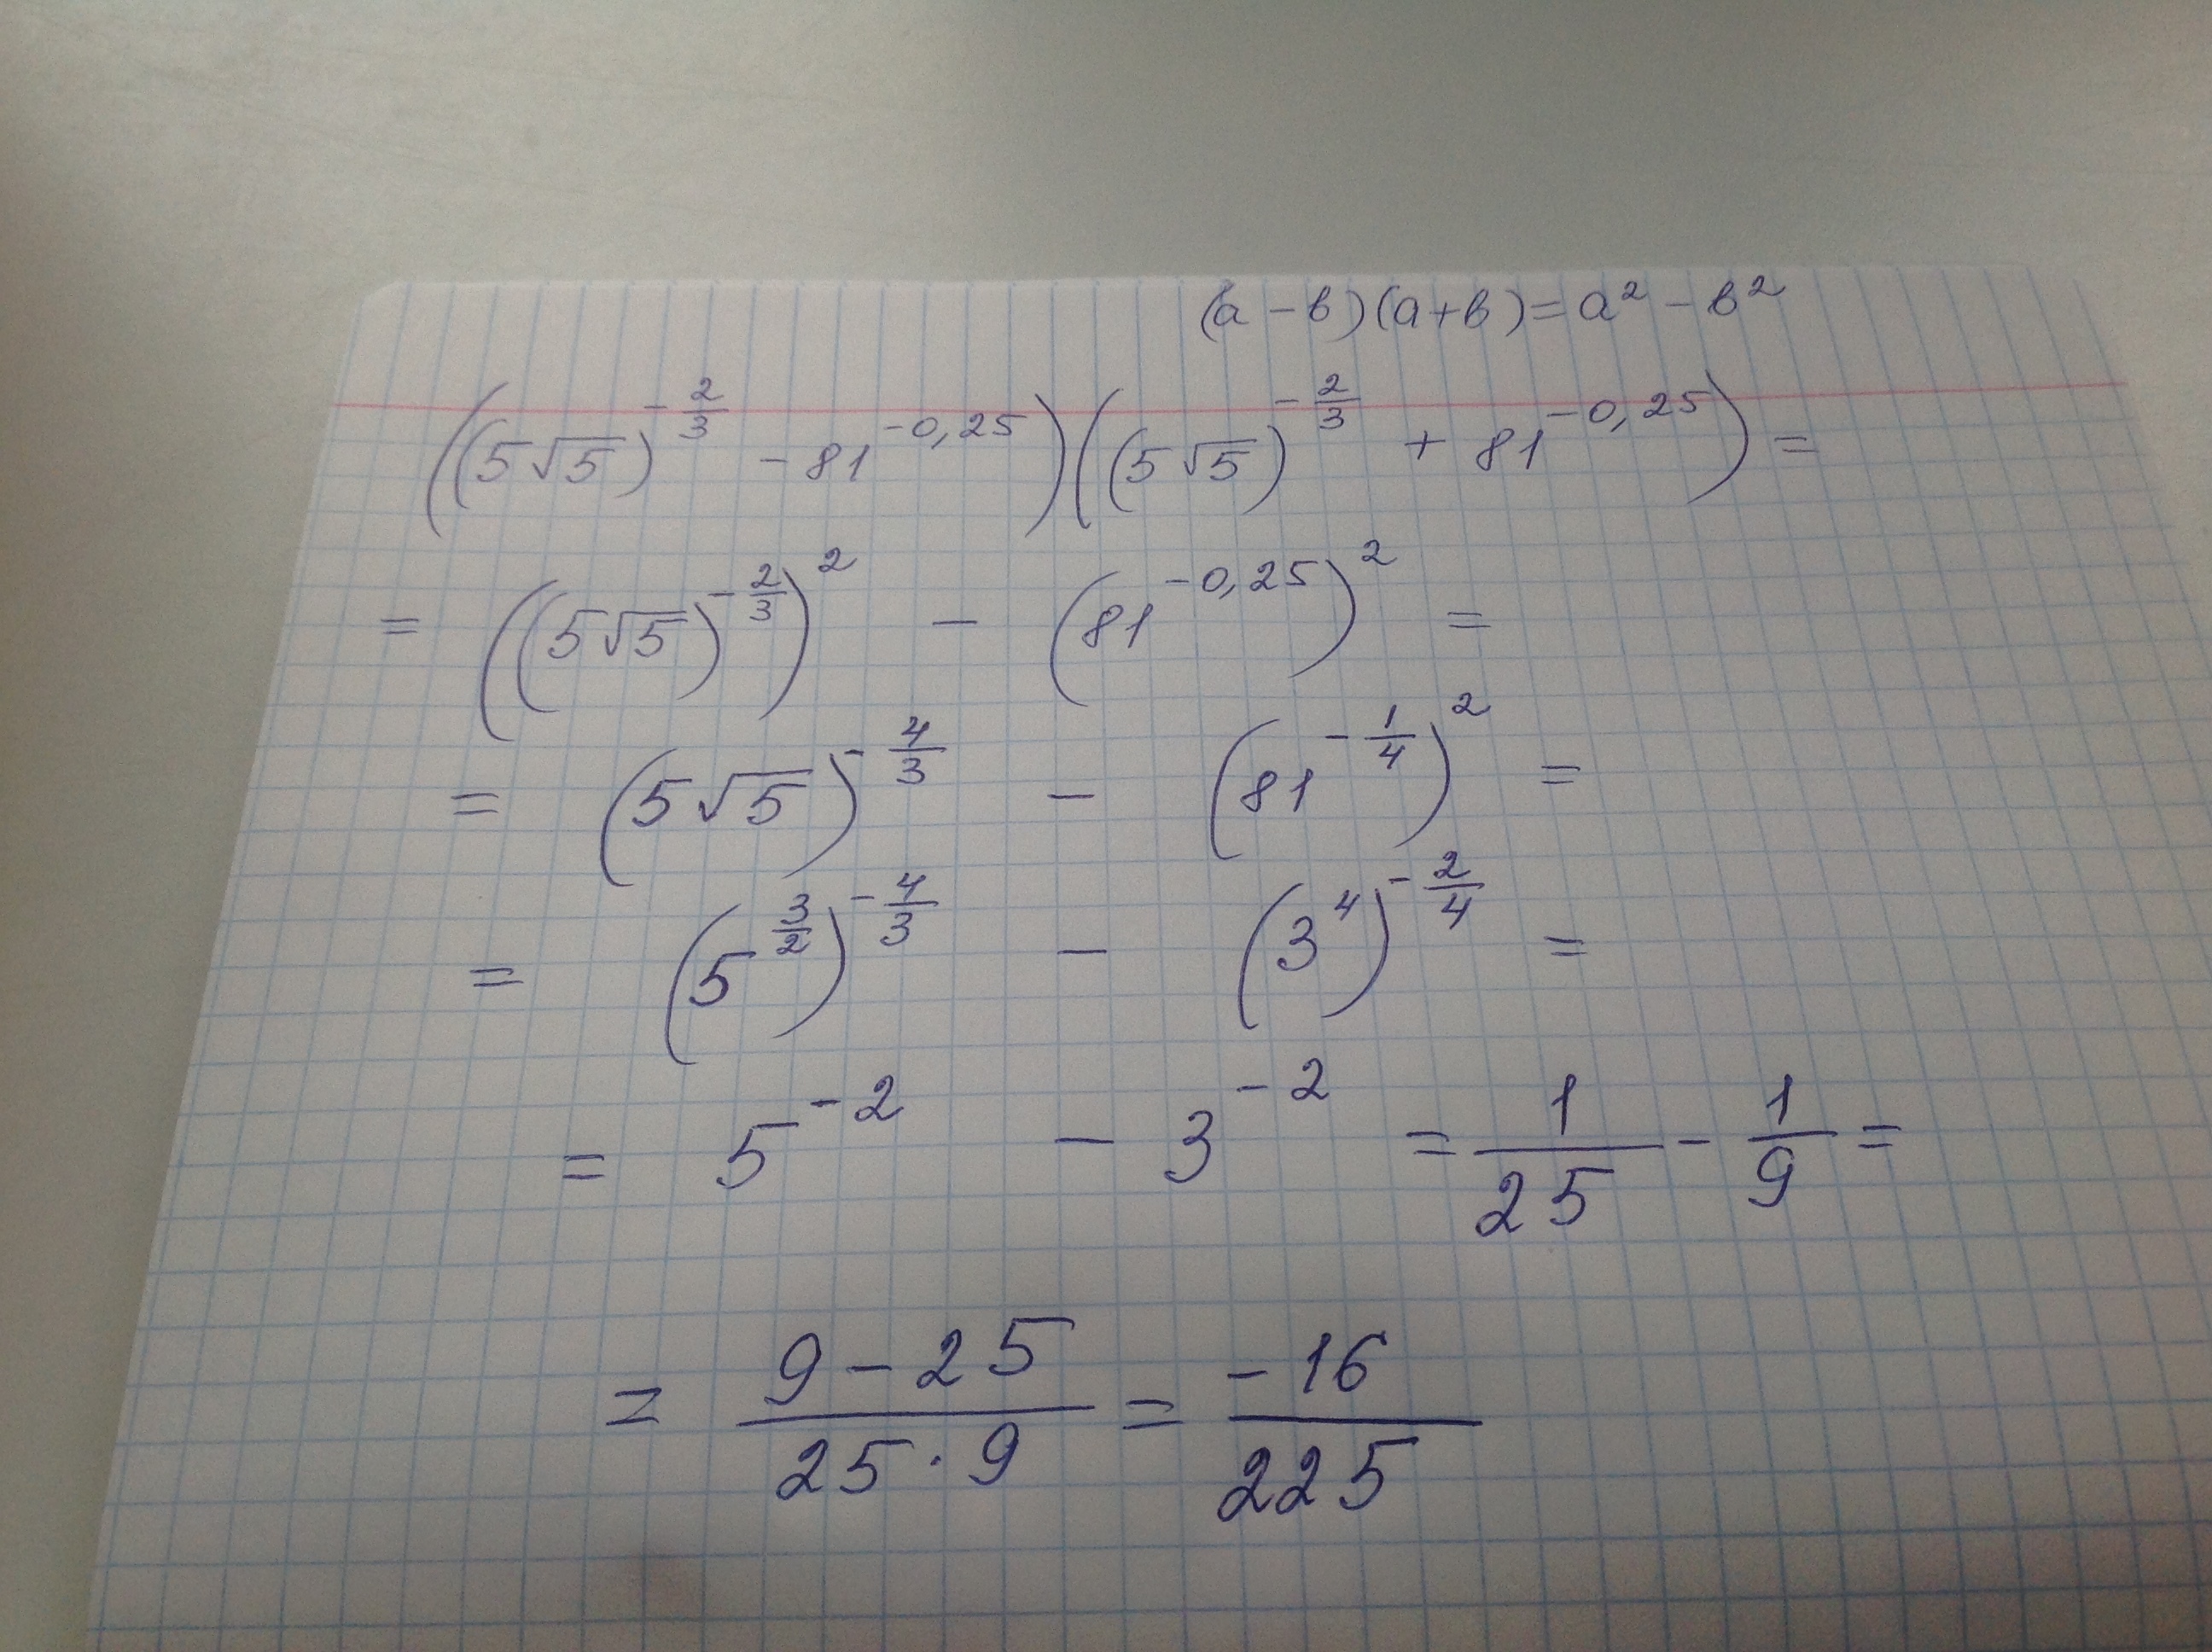 (a-b)(a+b)=a²-b²
((5√5)^{-2/3} - 81^{-0,25})((5√5)^{-2/3} + 81^{-0,25}) =
= ((5√5)^{-2/3})² - (81^{-0,25})² =
= (5√5)^{-4/3} - (81^{-1/4})² =
= (5^{3/2})^{-4/3} - (3⁴)^{-2/4} =
= 5^{-2} - 3^{-2} = 1/25 - 1/9 =
= (9-25)/(25·9) = -16/225